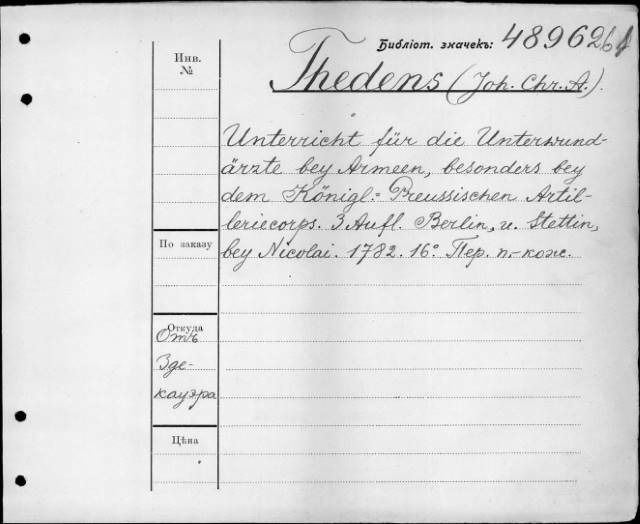 Библіот. значекъ: 4896261
Инв.
№
Thedens (Joh. Chr. A.).
Unterricht für die Unterwund-
ärzte bey Armeen, besonders bey
dem Königl: Preussischen Artil-
leriecorps. 3 Aufl. Berlin, u. Stettin,
По заказу
bey Nicolai. 1782. 16° Пер. п.-кож.
Откуда
Отъ
Зде-
кауэра
Цѣна